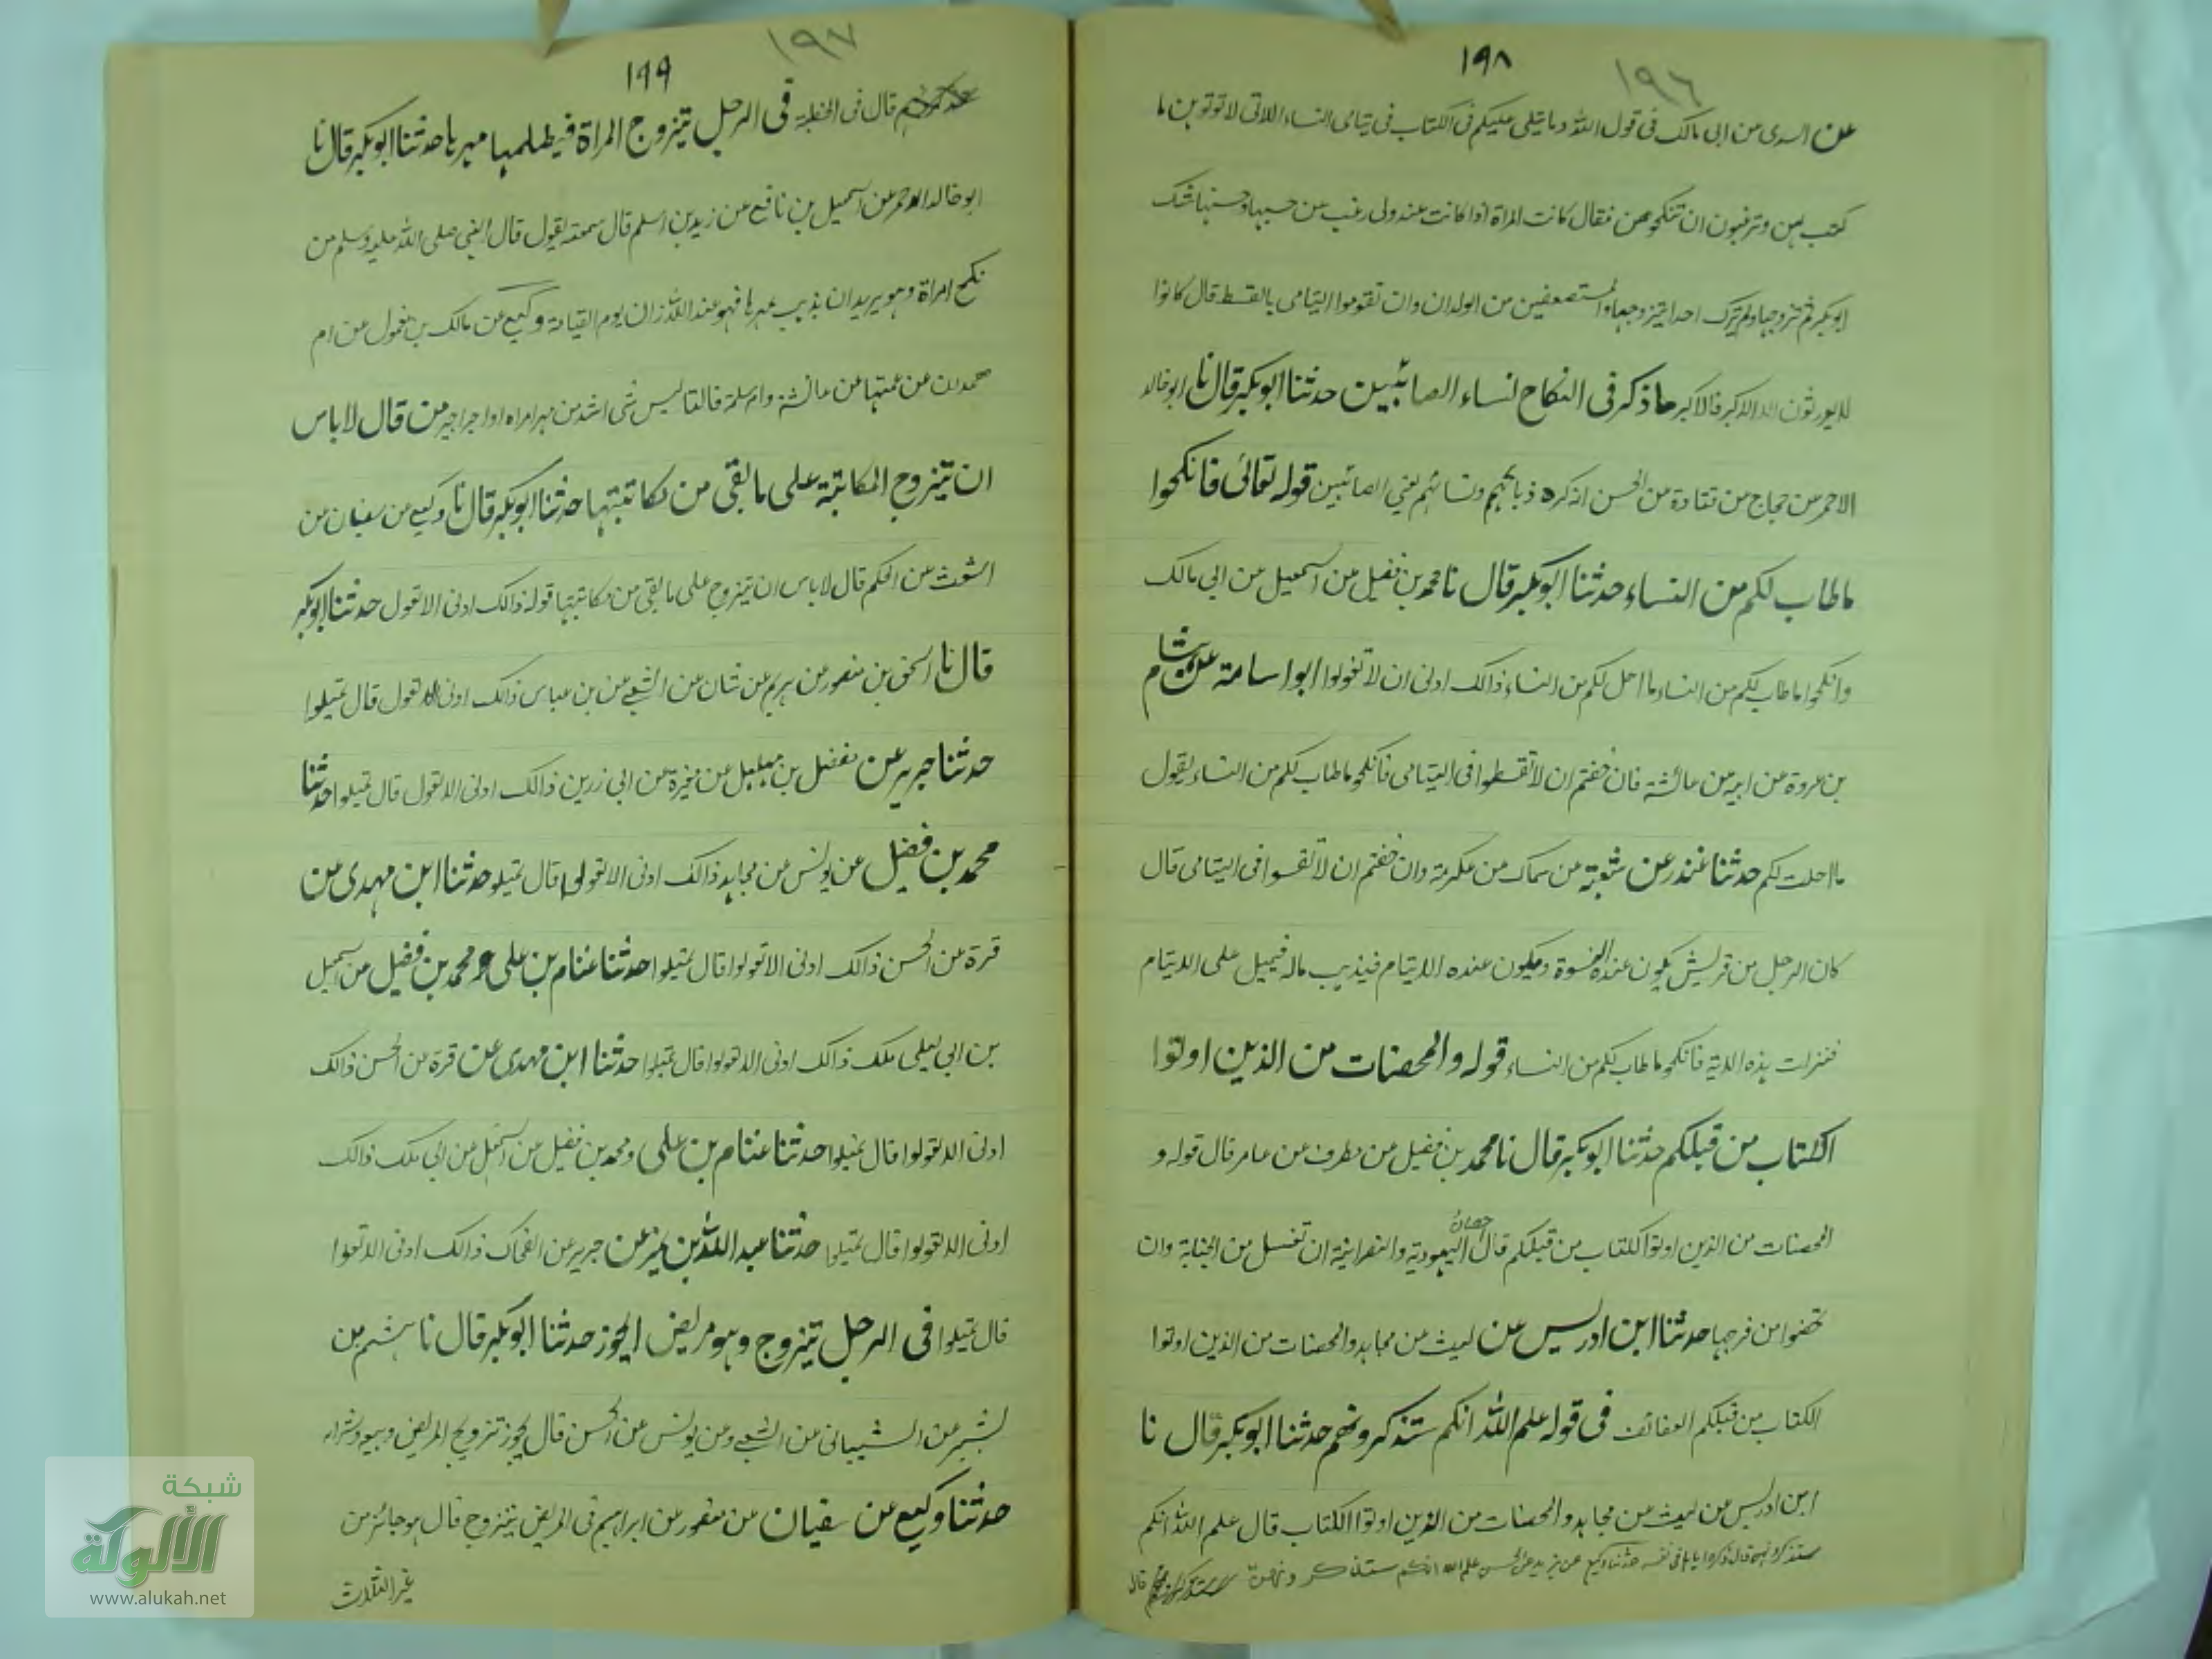 ١٩٨
١٩٦
عن السدى عن ابى مالك فى قول الله وما يتلى عليكم فى الكتاب فى يتامى النساء اللاتى لا توتوهن ما
كتب لهن وترغبون ان تنكحوهن فقال كانت المراة اذا كانت عند ولى رغب عن حسبها وحسنها شك
ابو بكر ثم يتزوجها ولم يترك احدا يتزوجها والمستضعفين من الولدان وان تقوموا لليتامى بالقسط قال كانوا
لا يورثون الا الاكبر فالاكبر ما ذكر فى النكاح لنساء الصائبين حدثنا ابو بكر قال نا ابو خالد
الاحمر عن حجاج عن قتادة عن الحسن انه كره ذبائحهم ونسائهم يعنى الصائبين قوله تعالى فانكحوا
ما طاب لكم من النساء حدثنا ابو بكر قال نا محمد بن فضيل عن اسمعيل عن ابى مالك
وانكحوا ما طاب لكم من النساء ما احل لكم من النساء ذالك ادنى ان لا تعولوا ابو اسامة عن هشام
بن عروة عن ابيه عن عائشة فان خفتم ان لا تقسطوا فى اليتامى فانكحوا ما طاب لكم من النساء يقول
ما احلت لكم حدثنا غندر عن شعبة عن سماك عن عكرمة وان خفتم ان لا تقسطوا فى اليتامى قال
كان الرجل من قريش يكون عنده النسوة ويكون عنده الايتام فيذهب ماله فيميل على الايتام
فنزلت هذه الاية فانكحوا ما طاب لكم من النساء قوله والمحصنات من الذين اوتوا
الكتاب من قبلكم حدثنا ابو بكر قال نا محمد بن فضيل عن مطرف عن عامر قال قوله و
المحصنات من الذين اوتوا الكتاب من قبلكم قال حصان اليهودية والنصرانية ان تغتسل من الجنابة وان
تحضوا من فرجها حدثنا ابن ادريس عن ليث عن مجاهد والمحصنات من الذين اوتوا
الكتاب من قبلكم العفائف فى قوله علم الله انكم ستذكرونهم حدثنا ابو بكر قال نا
ابن ادريس عن ليث عن مجاهد والمحصنات من الذين اوتوا الكتاب قال علم الله انكم
ستذكرونهن قال ذكره اياها فى نفسه حدثنا وكيع عن يزيد عن الحسن علم الله انكم ستذكرونهن قال
١٩٩
١٩٧
قال فى الخطبة فى الرجل يتزوج المراة فيظلمها مهرها حدثنا ابو بكر قال نا
ابو خالد الاحمر عن اسمعيل بن نافع عن زيد بن اسلم قال سمعته يقول قال النبى صلى الله عليه وسلم من
نكح امراة وهو يريد ان يذهب بمهرها فهو عند الله زان يوم القيامة وكيع عن مالك بن مغول عن ام
عن عمتها عن عائشة وام سلمة قالتا ليس شى اشد من مهر امراه او اجر اجير من قال لا باس
ان يتزوج المكاتبة على ما بقى من مكاتبتها حدثنا ابو بكر قال نا وكيع عن سفيان عن
اشعث عن الحكم قال لا باس ان يتزوج على ما بقى من مكاتبتها قوله ذالك ادنى الا تعول حدثنا ابو بكر
قال نا اسحق بن منصور عن هريم عن شان عن الشعبى عن بن عباس ذالك ادنى الا تعول قال تميلوا
حدثنا جرير عن مفضل بن مهلهل عن مغيرة عن ابى زرين ذالك ادنى الا تعول قال تميلوا حدثنا
محمد بن فضيل عن يونس عن مجاهد ذالك ادنى الا تعولوا قال تميلو حدثنا ابن مهدى عن
قرة عن الحسن ذالك ادنى الا تعولوا قال تميلوا حدثنا عثام بن على و محمد بن فضيل عن اسمعيل
بن ابى ليلى ملك ذالك ادنى الا تعولوا قال تميلوا حدثنا ابن مهدى عن قرة عن الحسن ذالك
ادنى الا تعولوا قال تميلوا حدثنا عثام بن على ومحمد بن فضيل عن اسمعيل عن ابى ملك ذالك
ادنى الا تعولوا قال تميلوا حدثنا عبد الله بن عن جرير عن الضحاك ذالك ادنى الا تعولوا
قال تميلوا فى الرجل يتزوج وهو مريض ايجوز حدثنا ابو بكر قال نا هشيم بن
بشير عن الشيبانى عن الشعبى وعن يونس عن الحسن قال يجوز تزويج المريض وبيعه وشراه
حدثنا وكيع عن سفيان عن منصور عن ابراهيم فى المريض يتزوج قال هو جائز من
غير الثلث
شبكة
الألوكة
www.alukah.net